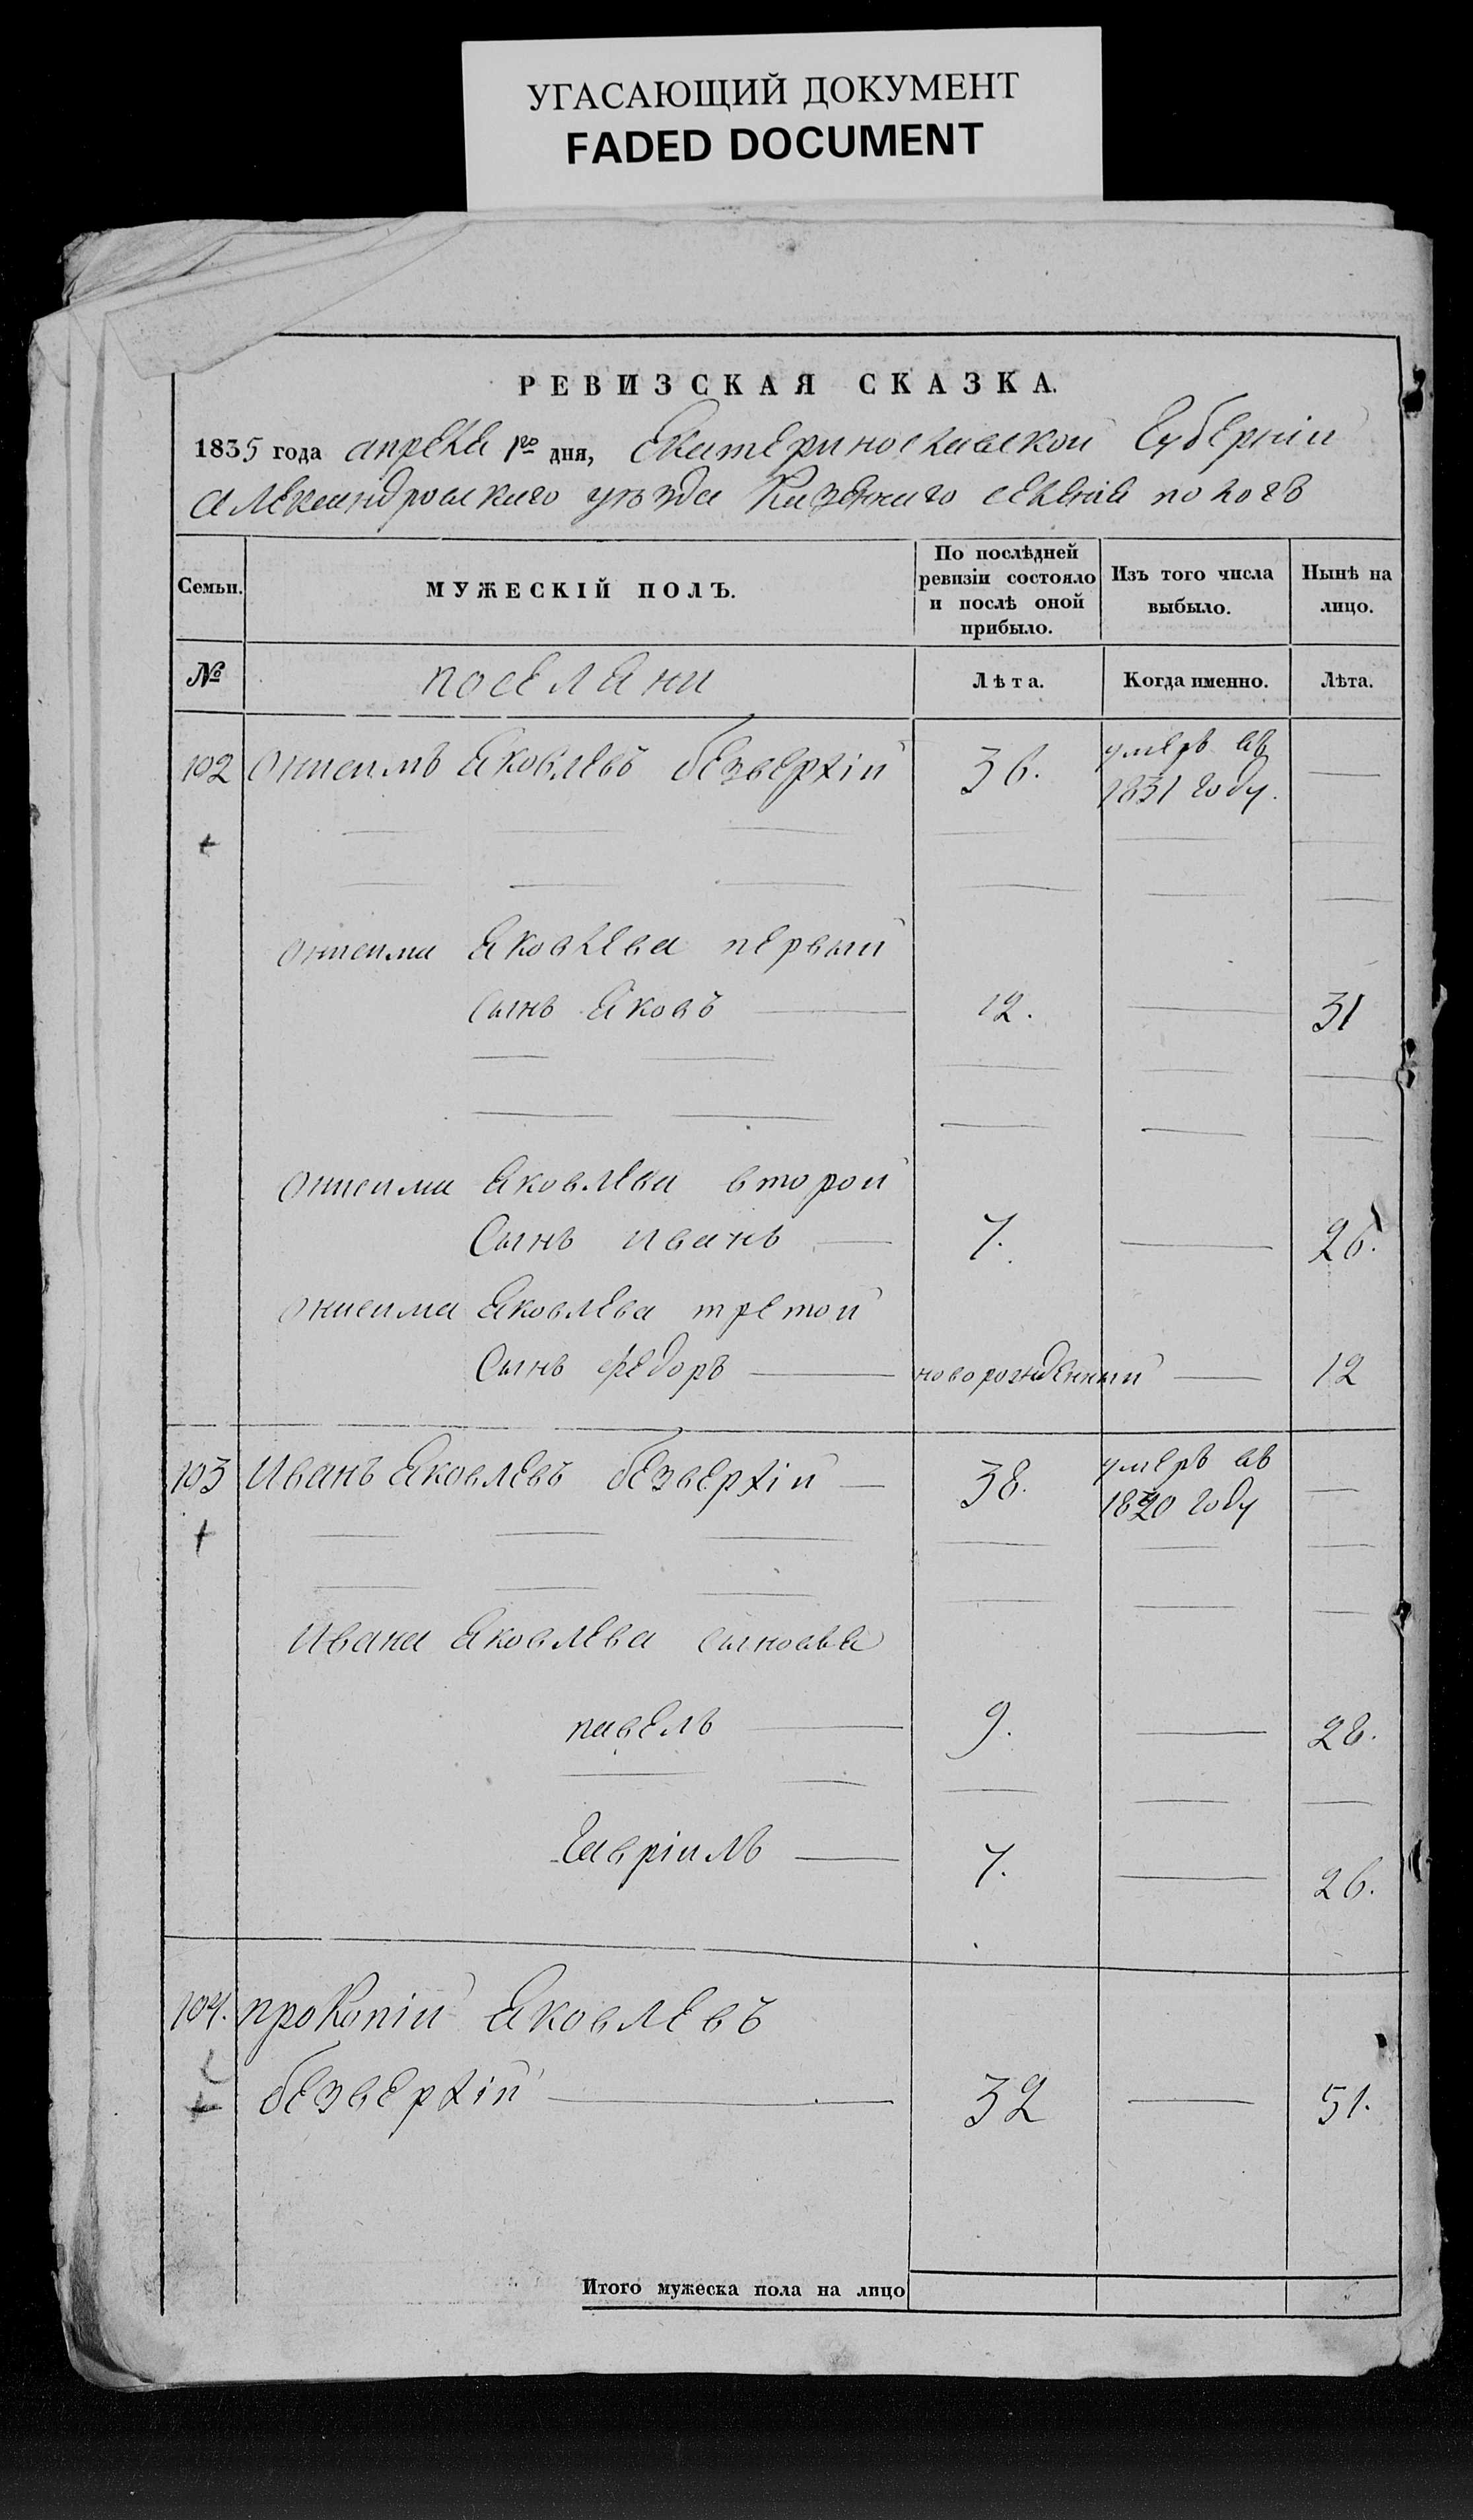 УГАСАЮЩИЙ ДОКУМЕНТ
FADED DOCUMENT
РЕВИЗСКАЯ СКАЗКА.
1835 года апреля 1го дня, Екатеринославской Губерніи
Александровскаго уезда Казеннаго селенія пологъ
Семьи.
МУЖЕСКІЙ ПОЛЪ.
По послѣдней ревизіи состояло и послѣ оной прибыло.
Изъ того числа выбыло.
Нынѣ на лицо.
№ поселяни Лѣта. Когда именно. Лѣта.
102 Онисимъ Яковлевъ безверхій 36. умеръ въ
1831 году.
Онисима Яковлева первый
Сынъ Яковъ 12. 31
Онисима Яковлева второй
Сынъ иванъ 7. 26.
Онисима Яковлева третой
Сынъ федоръ новорожденный 12
103 Иванъ Яковлевъ безверхій 38. умеръ въ
1820 году
Ивана Яковлева сыновья
павелъ 9. 28.
Гавріилъ 7. 26.
104. прокопій Яковлевъ
безверхій 32 51.
Итого мужеска пола на лицо